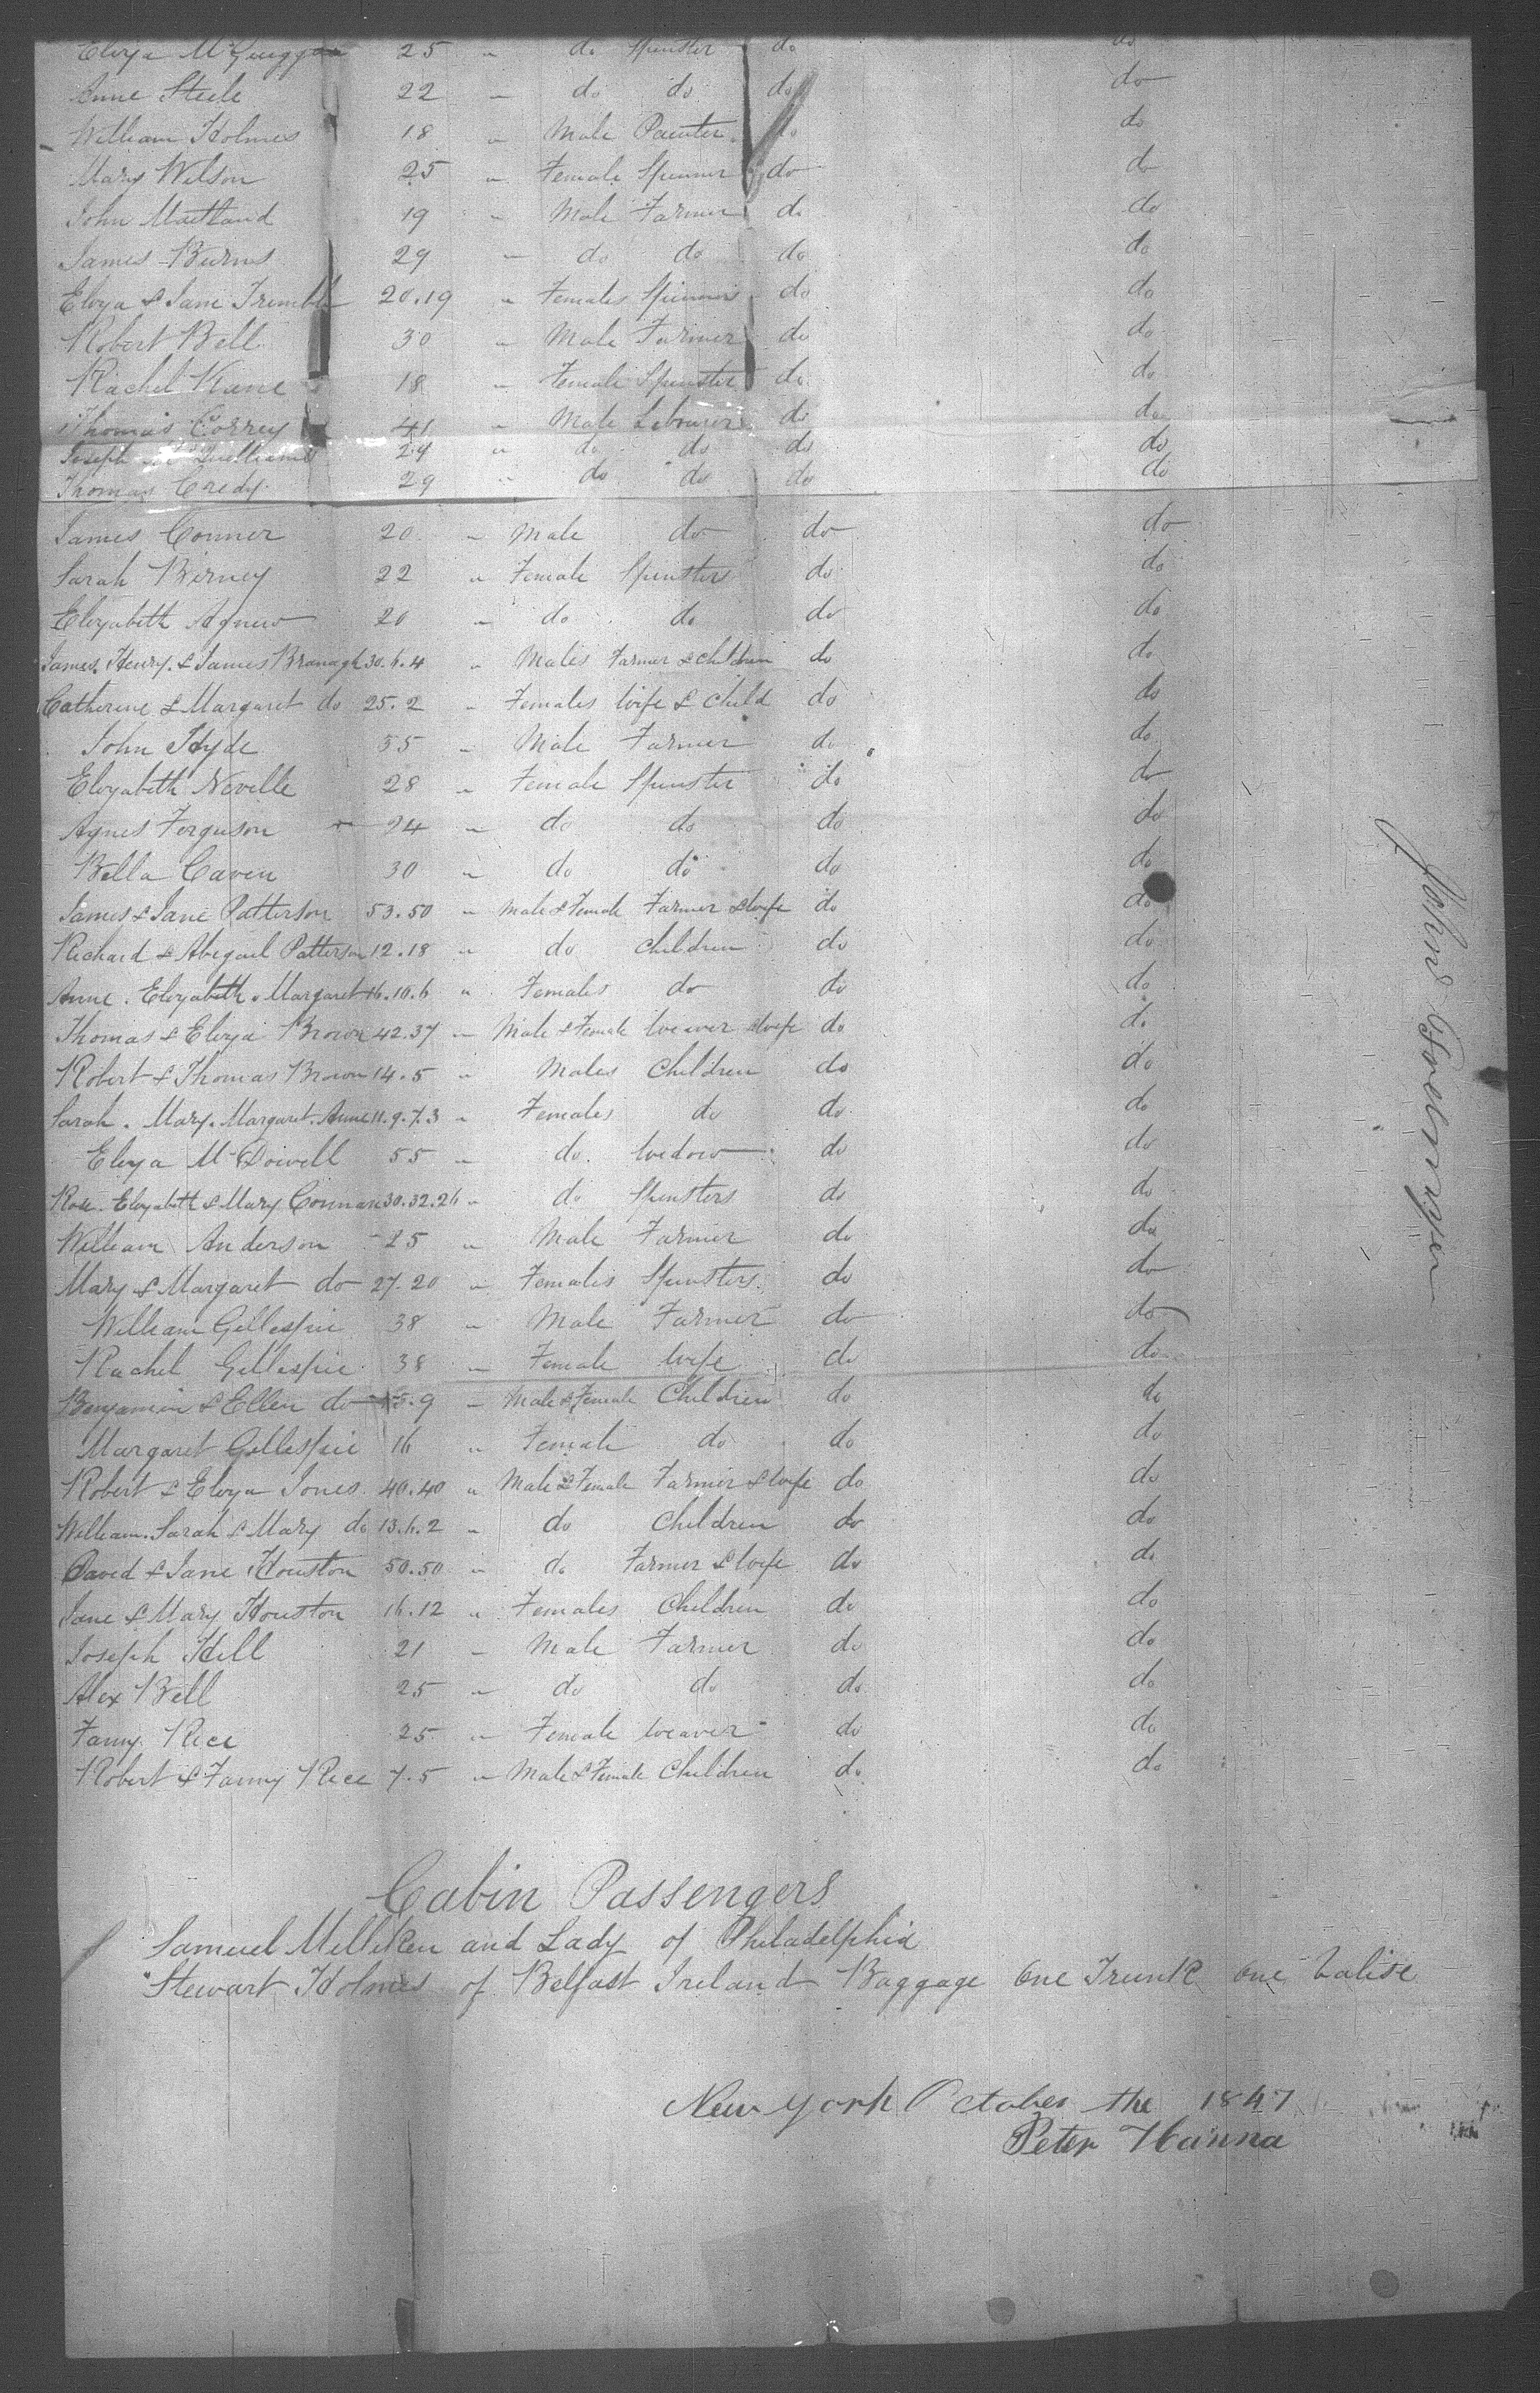 Elvza McGuiggan 25 " do Spinster do do
Anne Steele 22 " do do do do
William Holmes 18 " Male Painter do do
Mary Wilson 25 " Female Spinner do do
John Maitland 19 " Male Farmer do do
James Burns 29 " do do do do
Eliza & Jane Tremble 20.19 " Females Spinners do do
Robert Bell 30 " Male Farmer do do
Rachel Kane 18 " Female Spinster do do
Thomas Correy 41 " Male Labourer do do
Joseph 24 " do do do do
Thomas Credy 29 " do do do do
James Conner 20 " Male do do do
Sarah Birney 22 " Female Spinsters do do
Elizabeth Agnew 20 " do do do do
James, Henry, & James Branagh 30.6.4 " Males Farmer & children do do
Catherine & Margaret do 25.2 " Females Wife & Child do do
John Hyde 55 " Male Farmer do do
Elizabeth Neville 28 " Female Spinster do do
Agnes Ferguson 24 " do do do do
Bella Caven 30 " do do do do
James & Jane Patterson 53.50 " Male & Female Farmer & wife do do
Richard & Abigail Patterson 12.18 " do Children do do
Anne. Elizabeth. Margaret 16.10.6 " Females do do do
Thomas & Eliza Brown 42.37 " Male & Female Weaver & wife do do
Robert & Thomas Brown 14.5 " Males Children do do
Sarah. Mary. Margaret. Anne 11.9.7.3 " Females do do do
Eliza McDowell 55 " do. Widow do do
Rose. Elizabeth & Mary 30.32.26 " do Spinsters do do
William Anderson 25 " Male Farmer do do
Mary & Margaret do 27.20 " Females Spinsters do do
William Gillespie 38 " Male Farmer do do
Rachel Gillespie 38 " Female Wife do do
Benjamin & Ellen do 15.9 " Male & Female Children do do
Margaret Gillespie 16 " Female do do do
Robert & Eliza Jones 40.40 " Male & Female Farmer & wife do do
William. Sarah & Mary do 13.6.2 " do Children do do
David & Jane Houston 50.50 " do Farmer & Wife do do
Jane & Mary Houston 16.12 " Females Children do do
Joseph Hill 21 " Male Farmer do do
Alex Bell 25 " do do do do
Fanny Rice 25 " Female Weaver do do
Robert & Fanny Rice 7.5 " Male & Female Children do do
Cabin Passengers
Samuel Milliken and Lady of Philadelphia
Stewart Holmes of Belfast Ireland Baggage One Trunk one Valise
New York October the 1847
Peter Hanna